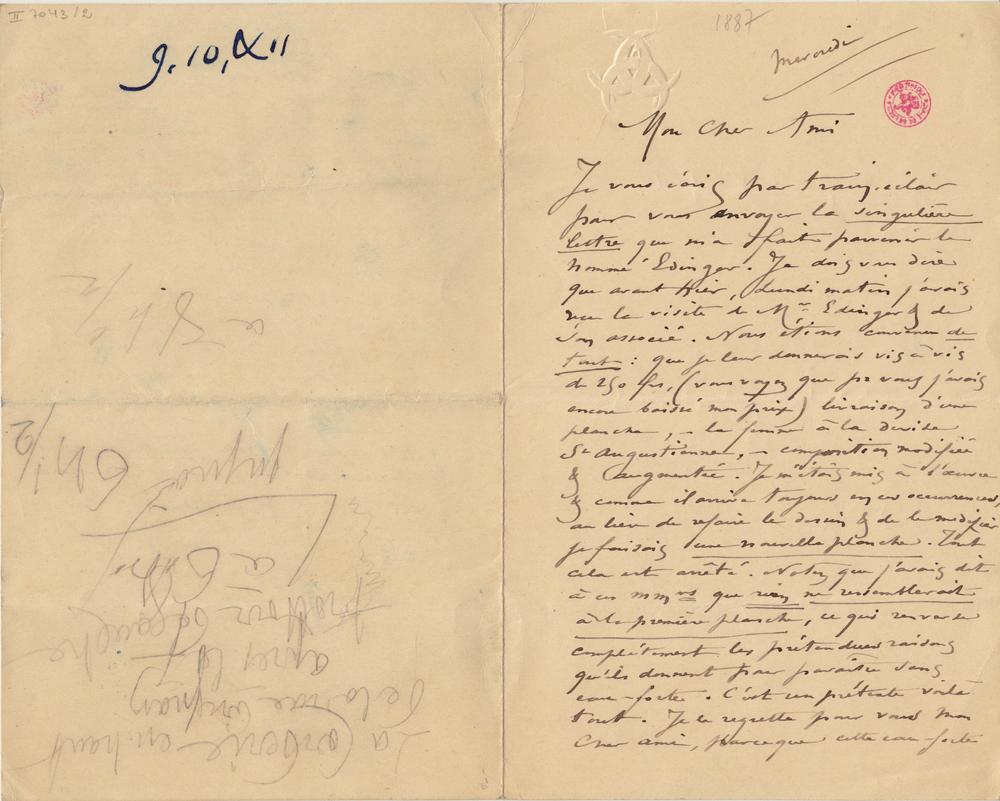 II 7043/2
9, 10, XII
1887
Mercredi
Mon Cher Ami
Je vous écris par train-éclair
pour vous envoyer la singulière
lettre que m'a fait parvenir le
nommé Edinger. Je dois vous dire
que avant hier, lundi matin j'avais
reçu la visite de Mr Edinger & de
son associé. Nous étions convenus de
tout : que je leur donnerais vis à vis
de 250 frs, (vous voyez que pr vous j'avais
encore baissé mon prix) livraison d'une
planche, - la femme à la devise
St Augustienne, - composition modifiée
& augmentée. Je m'étais mis à l'œuvre
& comme il arrive toujours en ces occurrences,
au lieu de refaire le dessin & de le modifier
je faisais une nouvelle planche. Tout
cela est arrêté. Notez que j'avais dit
à ces mmrs que rien ne ressemblerait
à la première planche, ce qui renverse
complètement les prétendues raisons
qu'ils donnent pour paraître sans
eau-forte. C'est un prétexte voilà
tout. Je le regrette pour vous mon
cher ami, parce que cette eau-forte
La
en haut
de la rue
après le
trottoir de gauche
à
6 h 1/2
à 7 h 1/2